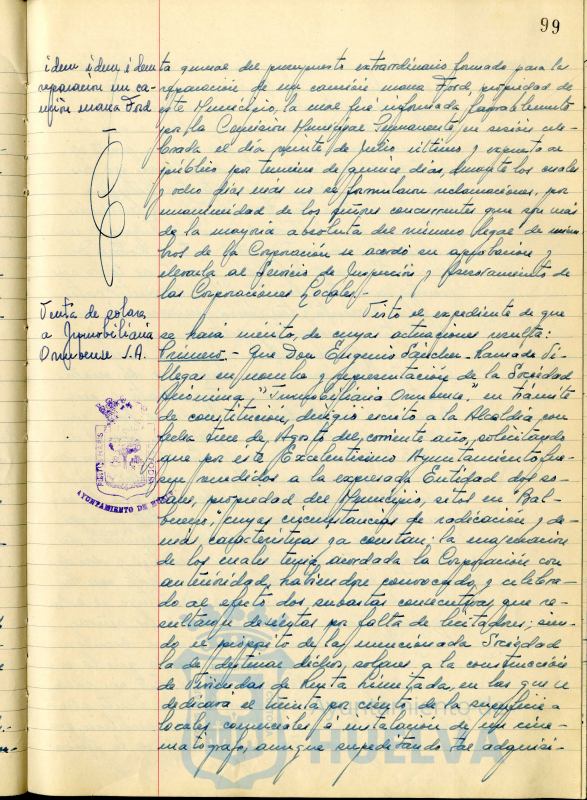 99
idem idem idem
reparación un ca-
mión marca Ford
ta general del presupuesto extraordinario formado para la
reparación de un camión marca Ford, propiedad de
este Municipio, la cual fué informada favorablemente
por la Comisión Municipal Permanente en sesión cele-
brada el día veinte de Julio último y expuesta al
público por termino de quince días, durante los cuales
y ocho días mas no se formularon reclamaciones, por
unanimidad de los señores concurrentes que son más
de la mayoria absoluta del número legal de miem
bros de la Corporación se acordó su aprobación y
elevarla al Servicio de Inspección y Asesoramiento de
las Corporaciones Locales.-
Venta de solares
a Inmobiliaria
Onubense S.A.
Visto el expediente de que
se hará mérito, de cuyas actuaciones resulta:
Primero.- Que Don Eugenio Sánchez-Ramade Vi-
llegas en nombre y representación de la Sociedad
Anónima, "Inmobiliaria Onubense" en trámite
de constitución, dirigió escrito a la Alcaldía con
fecha trece de Agosto del corriente año, solicitando
que por este Excelentísimo Ayuntamiento fue-
sen vendidos a la expresada Entidad dos so-
lares, propiedad del Municipio, sitos en
cuyas circunstancias de radicación y de-
más características ya constan: la enajenación
de los cuales tenia acordada la Corporación con
anterioridad, habiendose convocado y celebra-
do al efecto dos subastas consecutivas que re-
sultaron desiertas por falta de licitadores; sien-
do el propósito de la mencionada Sociedad
la de destinar dichos solares a la construcción
de Viviendas de Renta Limitada, en las que se
dedicará el treinta por ciento de la superficie a
locales comerciales e instalación de un cine-
matógrafo, aunque supeditando tal adquisi-
AYUNTAMIENTO DE
Ayuntamiento de
HUELVA